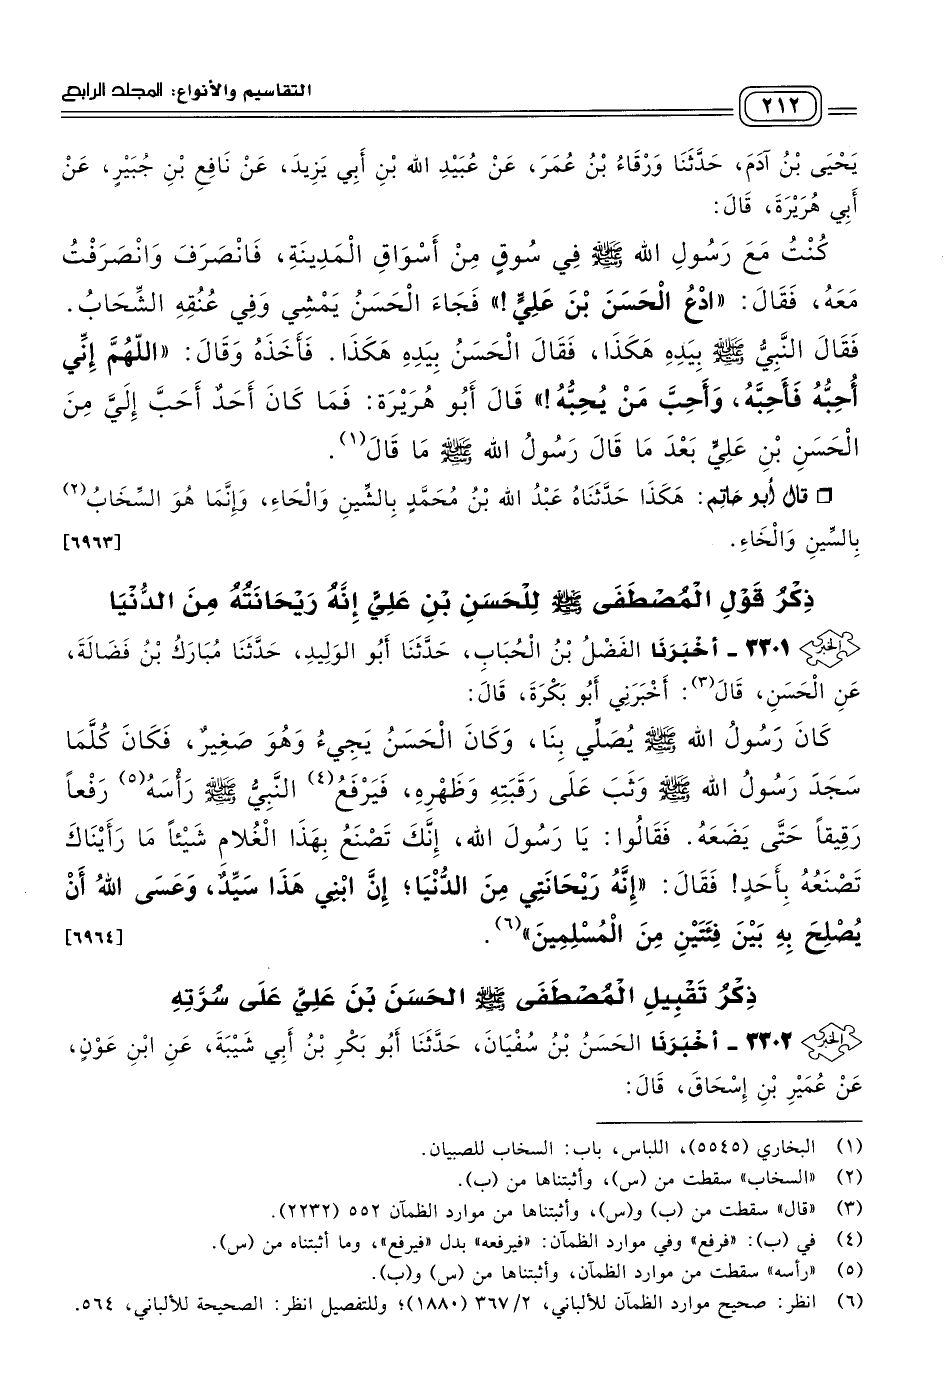 التقاسيم والأنواع: المجلد الرابع
٢١٢
يَحْيَى بْنُ آدَمَ، حَدَّثَنَا وَرْقَاءُ بْنُ عُمَرَ، عَنْ عُبَيْدِ الله بْنِ أَبِي يَزِيدَ، عَنْ نَافِعِ بْنِ جُبَيْرٍ، عَنْ
أَبِي هُرَيْرَةَ، قَالَ:
كُنْتُ مَعَ رَسُولِ الله ﷺ فِي سُوقٍ مِنْ أَسْوَاقِ الْمَدِينَةِ، فَانْصَرَفَ وَانْصَرَفْتُ
مَعَهُ، فَقَالَ: «ادْعُ الْحَسَنَ بْنَ عَلِيٍّ!» فَجَاءَ الْحَسَنُ يَمْشِي وَفِي عُنُقِهِ الشِّحَابُ.
فَقَالَ النَّبِيُّ ﷺ بِيَدِهِ هَكَذَا، فَقَالَ الْحَسَنُ بِيَدِهِ هَكَذَا. فَأَخَذَهُ وَقَالَ: «اللّهُمَّ إِنِّي
أُحِبُّهُ فَأَحِبَّهُ، وَأَحِبَّ مَنْ يُحِبُّهُ!» قَالَ أَبُو هُرَيْرَةَ: فَمَا كَانَ أَحَدٌ أَحَبَّ إِلَيَّ مِنَ
الْحَسَنِ بْنِ عَلِيٍّ بَعْدَ مَا قَالَ رَسُولُ الله ﷺ مَا قَالَ(١).
❒ قال أبو حاتم: هَكَذَا حَدَّثَنَاهُ عَبْدُ الله بْنُ مُحَمَّدٍ بِالشِّينِ وَالْحَاءِ، وَإِنَّمَا هُوَ السِّخَابُ(٢)
بِالسِّينِ وَالْخَاءِ. [٦٩٦٣]
ذِكْرُ قَوْلِ الْمُصْطَفَى ﷺ لِلْحَسَنِ بْنِ عَلِيٍّ إِنَّهُ رَيْحَانَتُهُ مِنَ الدُّنْيَا
الخبر ٣٣٠١ - أَخْبَرَنَا الفَضْلُ بْنُ الْحُبَابِ، حَدَّثَنَا أَبُو الوَلِيدِ، حَدَّثَنَا مُبَارَكُ بْنُ فَضَالَةَ،
عَنِ الْحَسَنِ، قَالَ(٣): أَخْبَرَنِي أَبُو بَكْرَةَ، قَالَ:
كَانَ رَسُولُ الله ﷺ يُصَلِّي بِنَا، وَكَانَ الْحَسَنُ يَجِيءُ وَهُوَ صَغِيرٌ، فَكَانَ كُلَّمَا
سَجَدَ رَسُولُ الله ﷺ وَثَبَ عَلَى رَقَبَتِهِ وَظَهْرِهِ، فَيَرْفَعُ(٤) النَّبِيُّ ﷺ رَأْسَهُ(٥) رَفْعاً
رَقِيقاً حَتَّى يَضَعَهُ. فَقَالُوا: يَا رَسُولَ الله، إِنَّكَ تَصْنَعُ بِهَذَا الْغُلَامِ شَيْئاً مَا رَأَيْنَاكَ
تَصْنَعُهُ بِأَحَدٍ! فَقَالَ: «إِنَّهُ رَيْحَانَتِي مِنَ الدُّنْيَا؛ إِنَّ ابْنِي هَذَا سَيِّدٌ، وَعَسَى اللهُ أَنْ
يُصْلِحَ بِهِ بَيْنَ فِئَتَيْنِ مِنَ الْمُسْلِمِينَ»(٦). [٦٩٦٤]
ذِكْرُ تَقْبِيلِ الْمُصْطَفَى ﷺ الحَسَنَ بْنَ عَلِيٍّ عَلَى سُرَّتِهِ
الخبر ٣٣٠٢ - أَخْبَرَنَا الحَسَنُ بْنُ سُفْيَانَ، حَدَّثَنَا أَبُو بَكْرِ بْنُ أَبِي شَيْبَةَ، عَنِ ابْنِ عَوْنٍ،
عَنْ عُمَيْرِ بْنِ إِسْحَاقَ، قَالَ:
(١) البخاري (٥٥٤٥)، اللباس، باب: السخاب للصبيان.
(٢) «السخاب» سقطت من (س)، وأثبتناها من (ب).
(٣) «قال» سقطت من (ب) و(س)، وأثبتناها من موارد الظمآن ٥٥٢ (٢٢٣٢).
(٤) في (ب): «فرفع» وفي موارد الظمآن: «فيرفعه» بدل «فيرفع»، وما أثبتناه من (س).
(٥) «رأسه» سقطت من موارد الظمآن، وأثبتناها من (س) و(ب).
(٦) انظر: صحيح موارد الظمآن للألباني، ٣٦٧/٢ (١٨٨٠)؛ وللتفصيل انظر: الصحيحة للألباني، ٥٦٤.